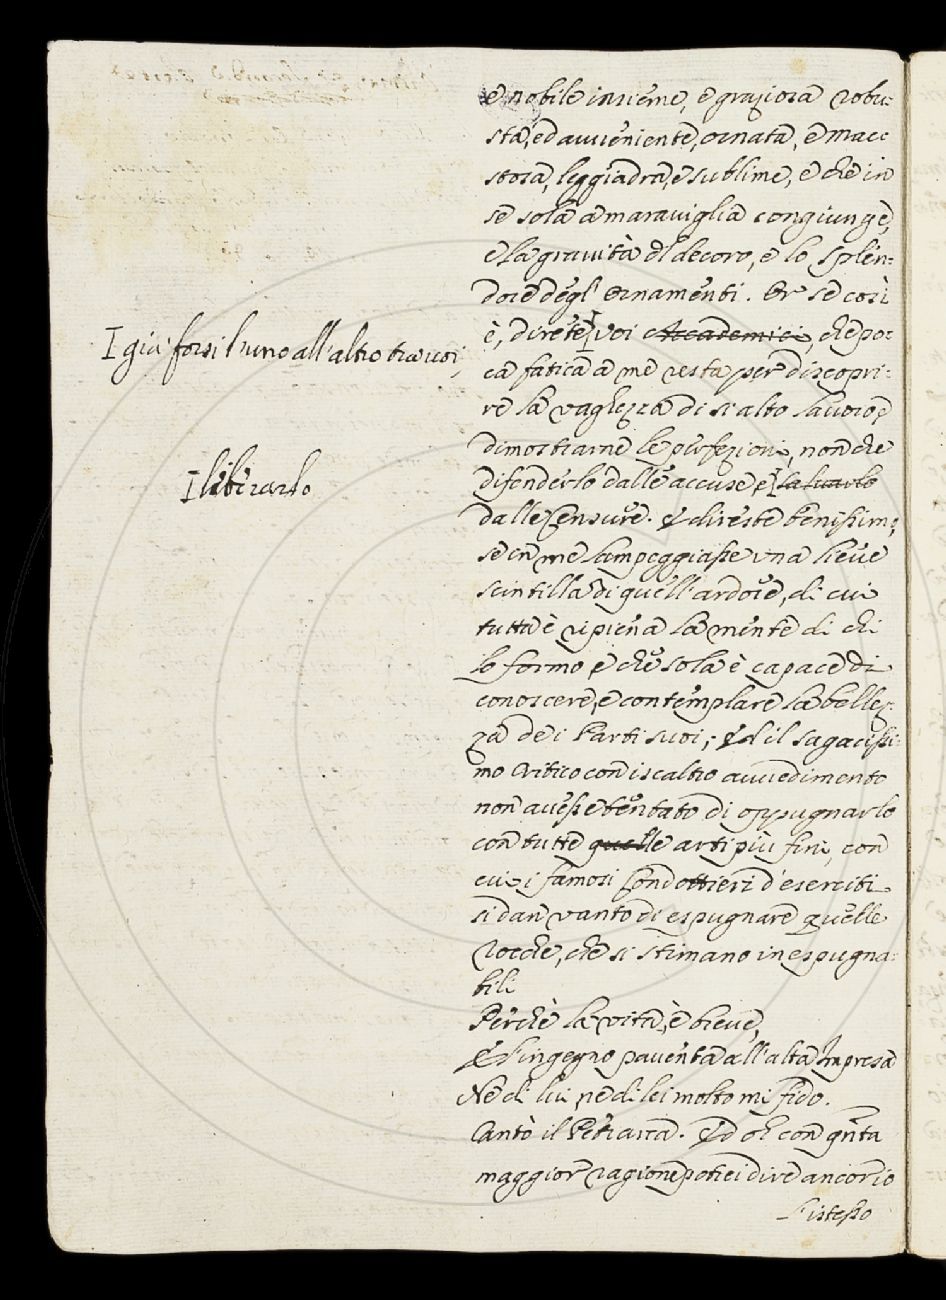 e nobile insieme, e graziosa robu-
sta, ed avveniente, ornata, e mae
stosa, leggiadra, e sublime, e che in
se sola a maraviglia congiunge,
e la gravità del decoro, e lo splen-
dore degl' ornamenti. Or se così
è, direte voi Accademici, che po-
I già forsi l'uno all'altro tra voi,
ca fatica a me resta per discopri-
re la vaghezza di si alto lavoro, e
dimostrarne le perfezioni, non che
difenderlo dalle accuse, e I salvarlo
I liberarlo
dalle censure. E direste benissimo,
se in me lampeggiasse una lieve
scintilla di quell'ardore, di cui
tutta è ripiena la mente di chi
lo formo e che sola è capace di
conoscere, e contemplare la bellez-
za dei Parti suoi; Ed il sagacissi-
mo Critico con iscaltro avvedimento
non avesse tentato di oppugnarlo
con tutte quelle arti più fini, con
cui i famosi Condottieri d'eserciti
si dan vanto di espugnare quelle
rocche, che si stimano inespugna-
bili
Perchè la vita, è breve,
E l'ingegno paventa all'alta Impresa
Ne di lui, ne di lei molto mi fido.
Cantò il Petrarca. Ed oh con qnta
maggior ragione potrei dire ancor io
l'istesso